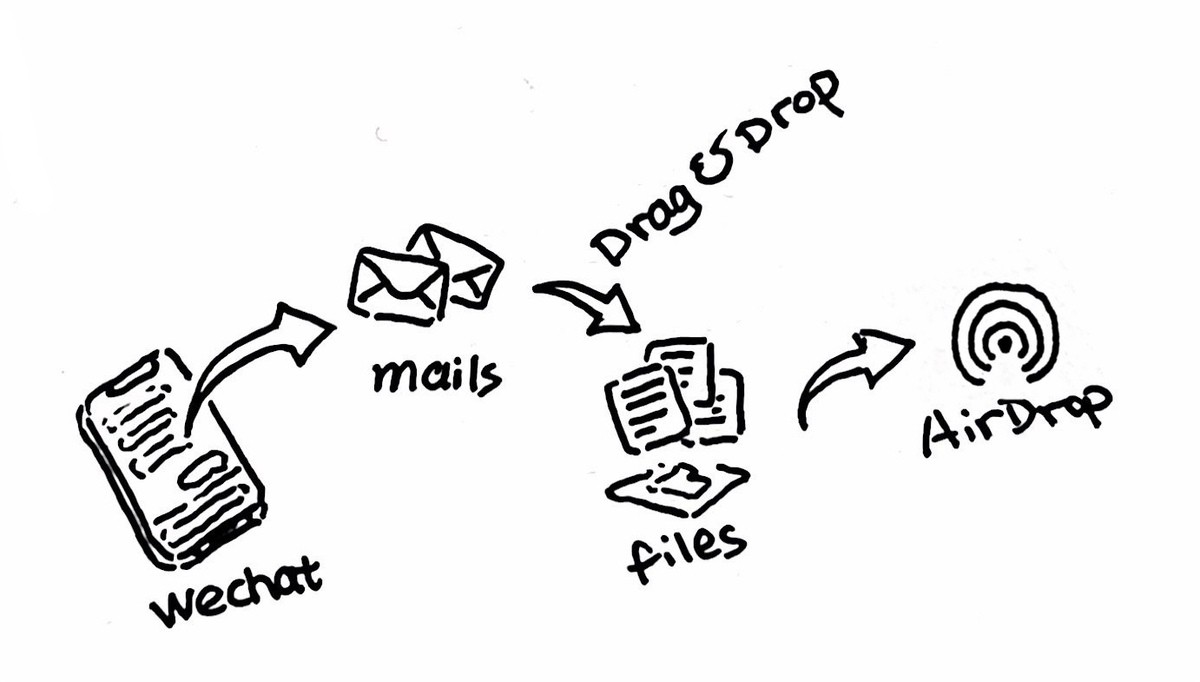 wechat
mails
Drag & Drop
files
AirDrop